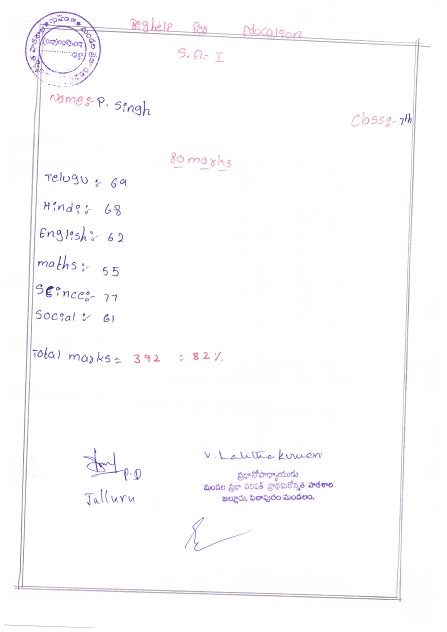 Bighelp For Education
S.A:- I
Name:- P. Singh
Class:- 7th
80 marks
Telugu :- 69
Hindi:- 68
English:- 62
maths:- 55
Seince:- 77
Social :- 61
Total marks = 392 = 82%
P.D
Jalluru
V. Lalitha Kumari
ప్రధానోపాధ్యాయుడు
మండల ప్రజా పరిషత్ ప్రాథమికోన్నత పాఠశాల
జల్లూరు, పిఠాపురం మండలం.